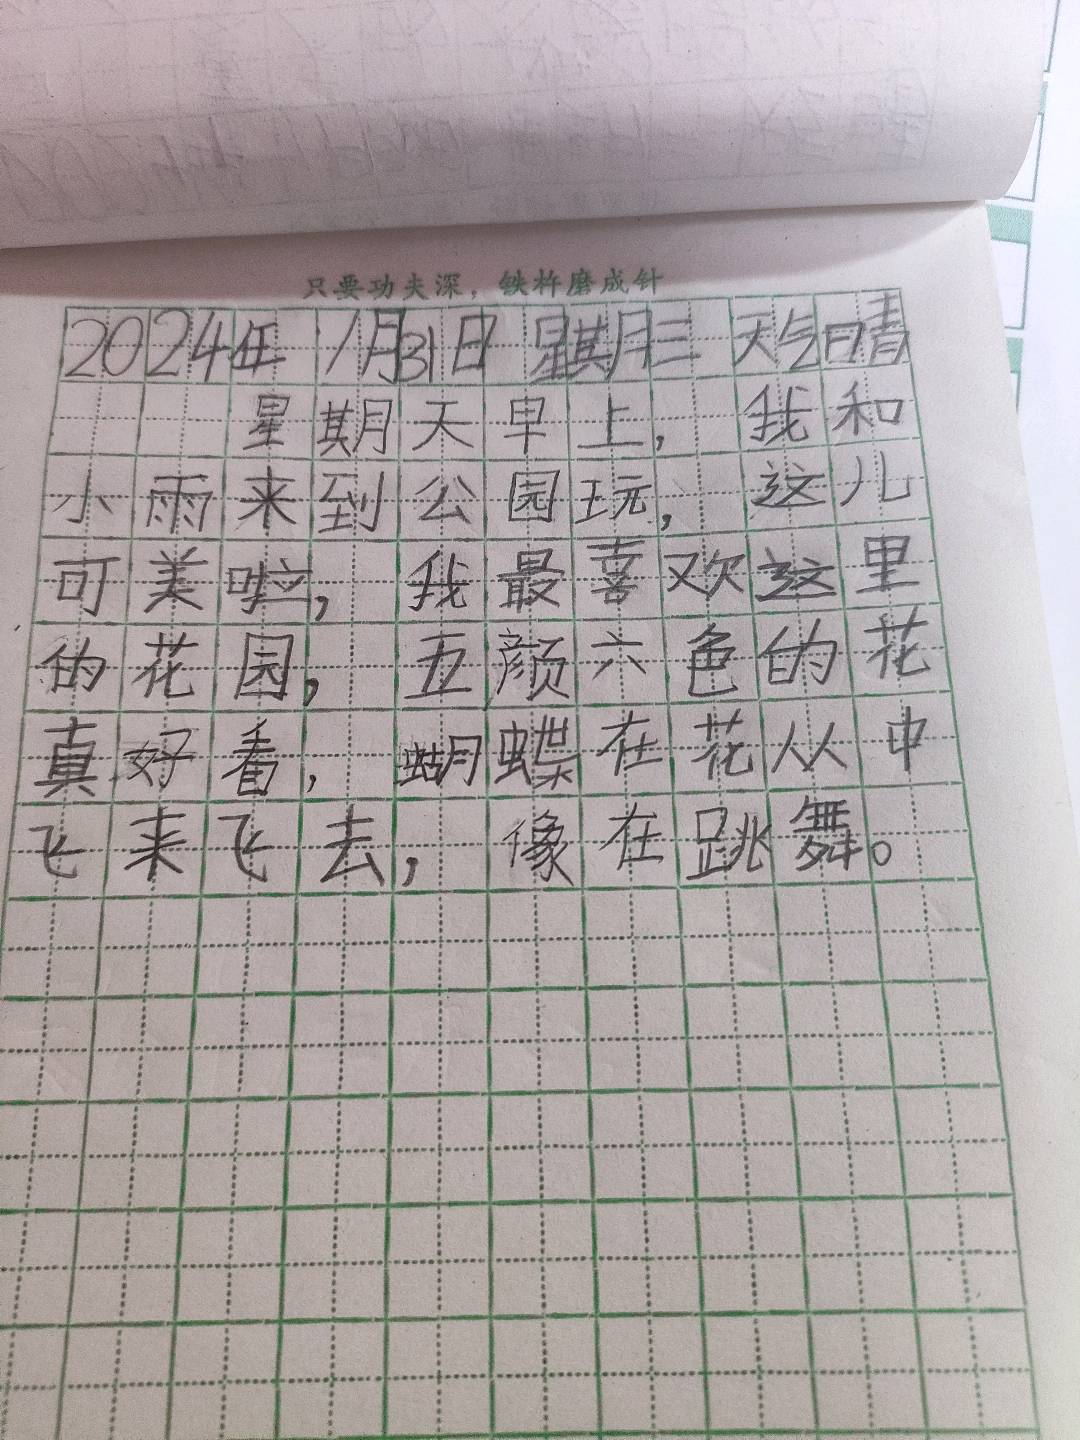 只要功夫深，铁杵磨成针
2024年 1月31日 星期三 天气晴
星期天早上，我和
小雨来到公园玩，这儿
可美啦，我最喜欢这里
的花园，五颜六色的花
真好看，蝴蝶在花从中
飞来飞去，像在跳舞。